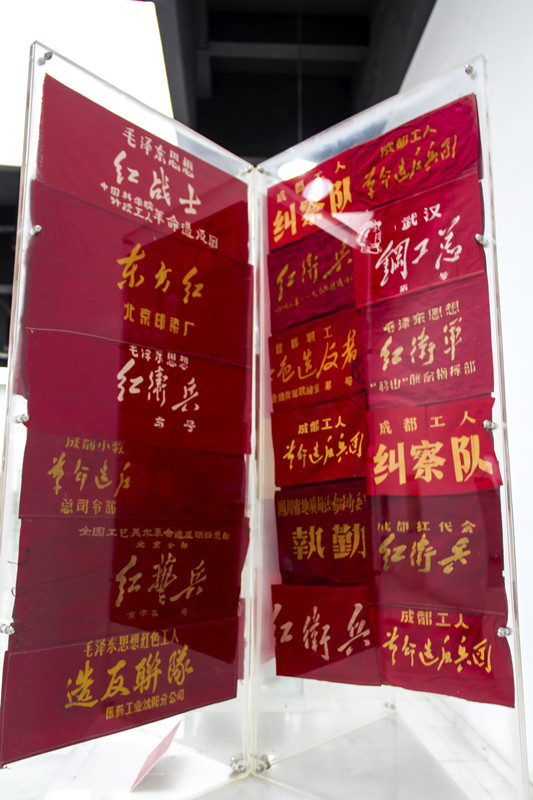 毛泽东思想
红战士
中国科学院
革命造反团
东方红
北京印染厂
毛泽东思想
红衛兵
号
成都小教
革命造反
总司令部
全国工艺美术革命造反联络总部
北京分部
红藝兵
毛泽东思想红色工人
造反聯隊
医药工业沈阳分公司
成都工人
纠察队
红衛兵
首都职工
色造反者
号
成都工人
革命造反兵团
四川省地质局
執勤
红衛兵
成都工人
革命造反兵团
武汉
鋼工总
号
毛泽东思想
红衛军
前沿指挥部
成都工人
纠察队
成都红代会
红衛兵
成都工人
革命造反兵团